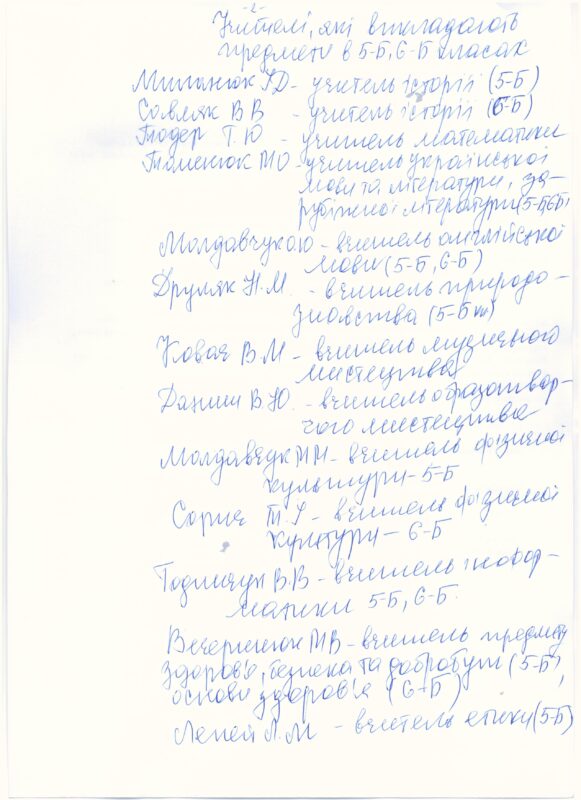 -2-
Учителі, які викладають
предмети в 5-Б, 6-Б класах
Миланюк Я.Д- учитель історії (5-Б)
Савляк В В - учитель історії (6-Б)
Тодер Т.Ю - учитель математики
Томенюк М О - учитель української
мови та літератури, за-
рубіжної літератури (5-Б, 6-Б)
Молдавчук О Ю - вчитель англійської
мови (5-Б, 6-Б)
Друляк Н.М. - вчитель природо-
знавства (5-Б
Ковач В.М - вчитель музичного
мистецтва
Данили В.Ю. - вчитель образотвор-
чого мистецтва
Молдавчук М М - вчитель фізичної
культури - 5-Б
Сорич - вчитель фізичної
культури - 6-Б
Тодинчук В.В - вчитель інфор-
матики 5-Б, 6-Б.
Вечеринюк М В - вчитель предмету
здоров'я, безпека та добробут (5-Б),
основи здоров'я (6-Б)
Лепей Л.М - вчитель етики (5-Б)